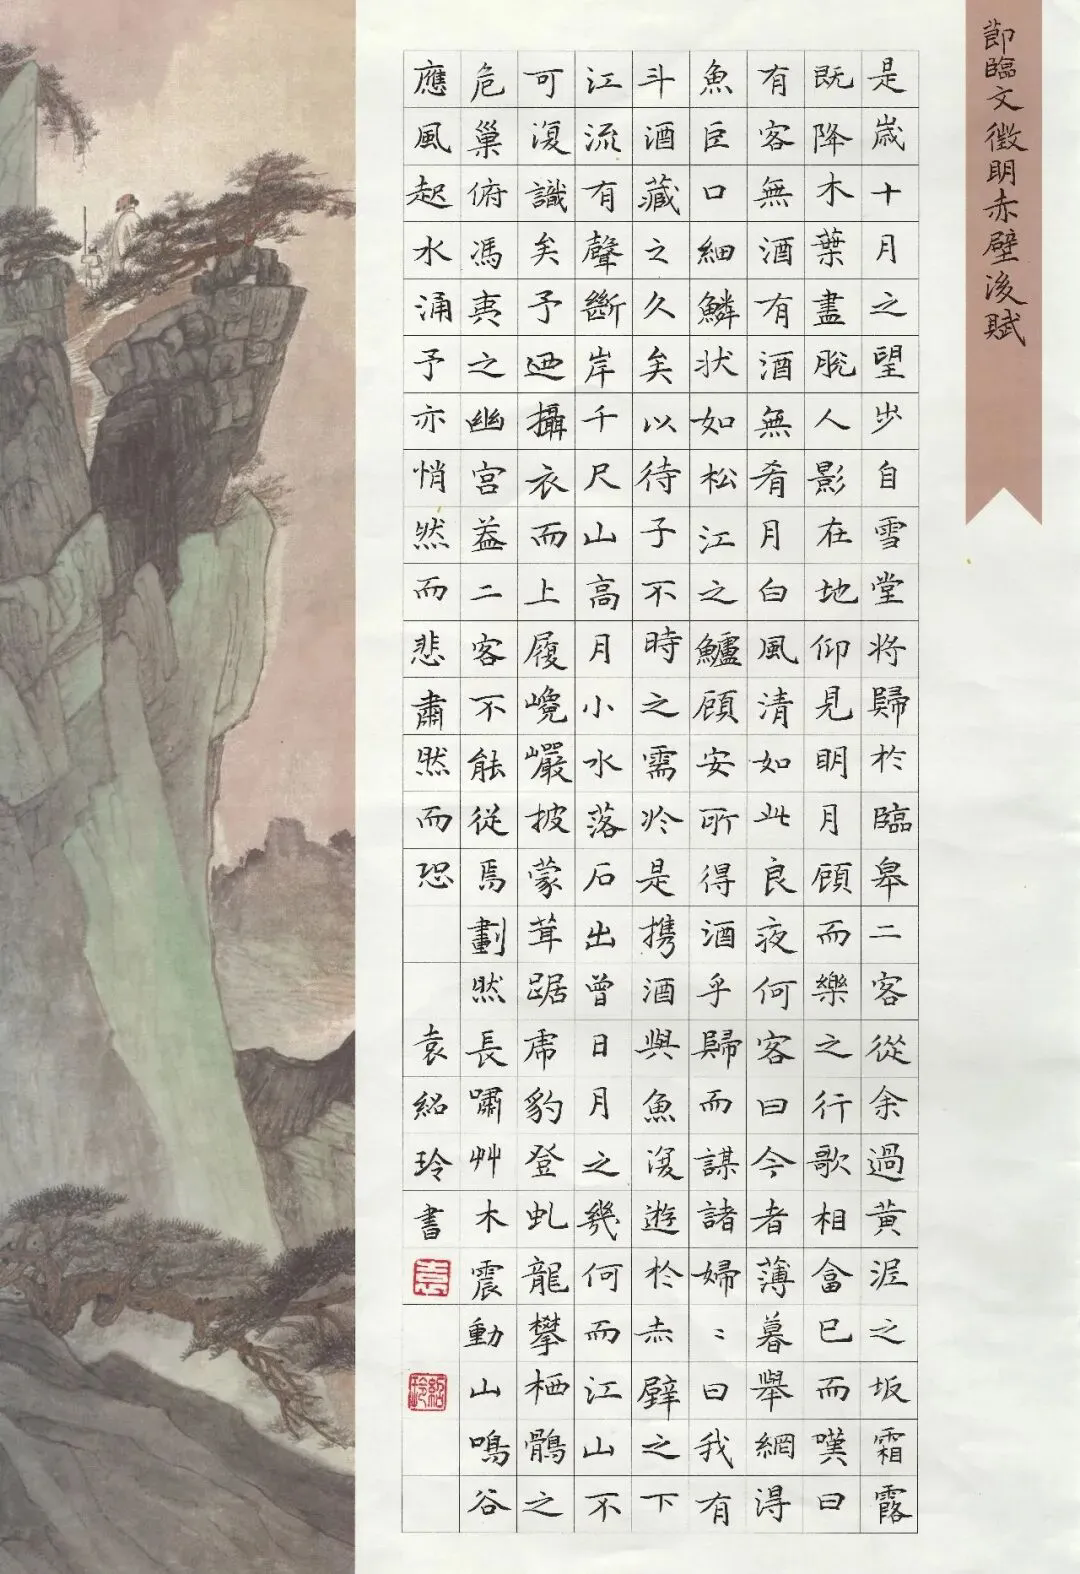 節臨文徵明赤壁後賦
是歲十月之望步自雪堂將歸於臨皋二客從余過黃泥之坂霜露
既降木葉盡脫人影在地仰見明月顧而樂之行歌相畣已而嘆曰
有客無酒有酒無肴月白風清如此良夜何客曰今者薄暮舉網得
魚巨口細鱗狀如松江之鱸顧安所得酒乎歸而謀諸婦〻曰我有
斗酒藏之久矣以待子不時之需於是携酒與魚復遊於赤壁之下
江流有聲斷岸千尺山高月小水落石出曾日月之幾何而江山不
可復識矣予迺攝衣而上履巉巖披蒙茸踞虎豹登虬龍攀栖鶻之
危巢俯馮夷之幽宮蓋二客不能從焉劃然長嘯艸木震動山鳴谷
應風起水涌予亦悄然而悲肅然而恐 袁紹玲書
袁
紹玲